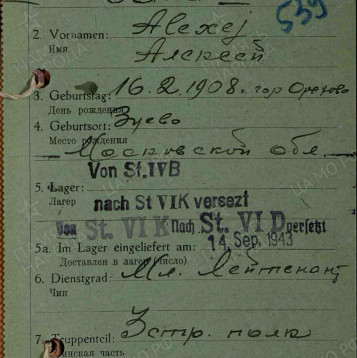 539
2. Vornamen: Alexej
Имя Алексей
3. Geburtstag: 16.2.1908. гор Орехово
День рождения
4. Geburtsort: Зуево
Место рождения
Московской обл
Von St.IVB
5. Lager: nach St VIK versezt
Лагер
von St. VIK Nach St. VI D versetzt
5a. Im Lager eingeliefert am: 14. Sep. 1943
Доставлен в лагер (число)
6. Dienstgrad: Мл. Лейтенант
Чин
7. Truppenteil: Зстр. полк
Воинская часть